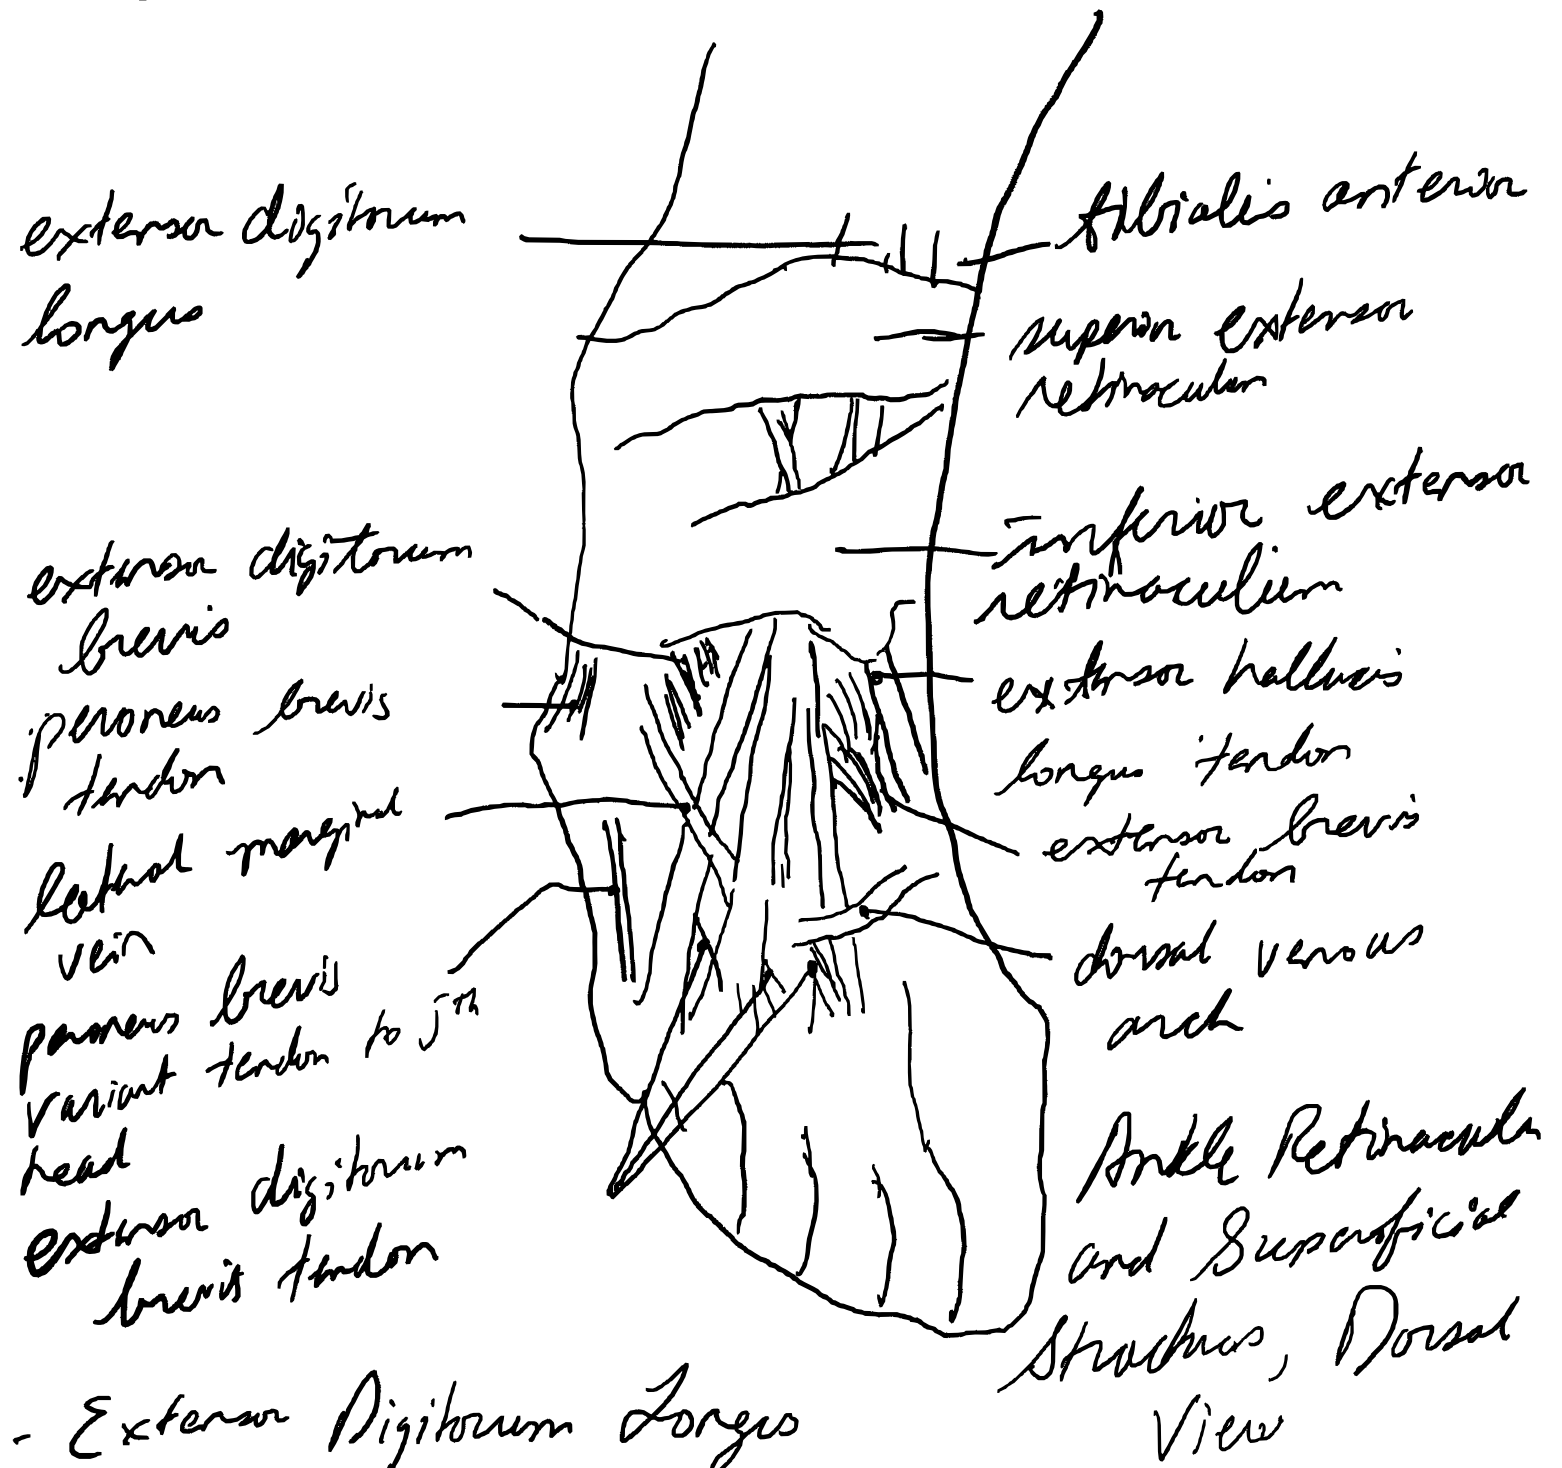 extensor digitorum
longus
extensor digitorum
brevis
peroneus brevis
tendon
lateral marginal
vein
peroneus brevis
variant tendon to 5th
head
extensor digitorum
brevis tendon
- Extensor Digitorum Longus
tibialis anterior
superior extensor
retinaculum
inferior extensor
retinaculum
extensor hallucis
longus tendon
extensor brevis
tendon
dorsal venous
arch
Ankle Retinacula
and Superficial
Structures, Dorsal
View